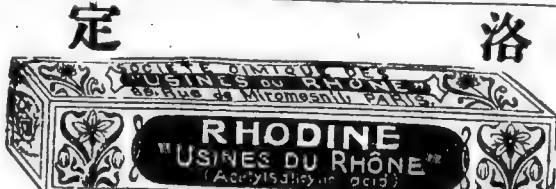 定 洛
SOCIÉTÉ CHIMIQUE DES
"USINES DU RHÔNE"
Rue de Miromesnil, PARIS.
RHODINE
"USINES DU RHÔNE"
(Acetylsalicylic acid)